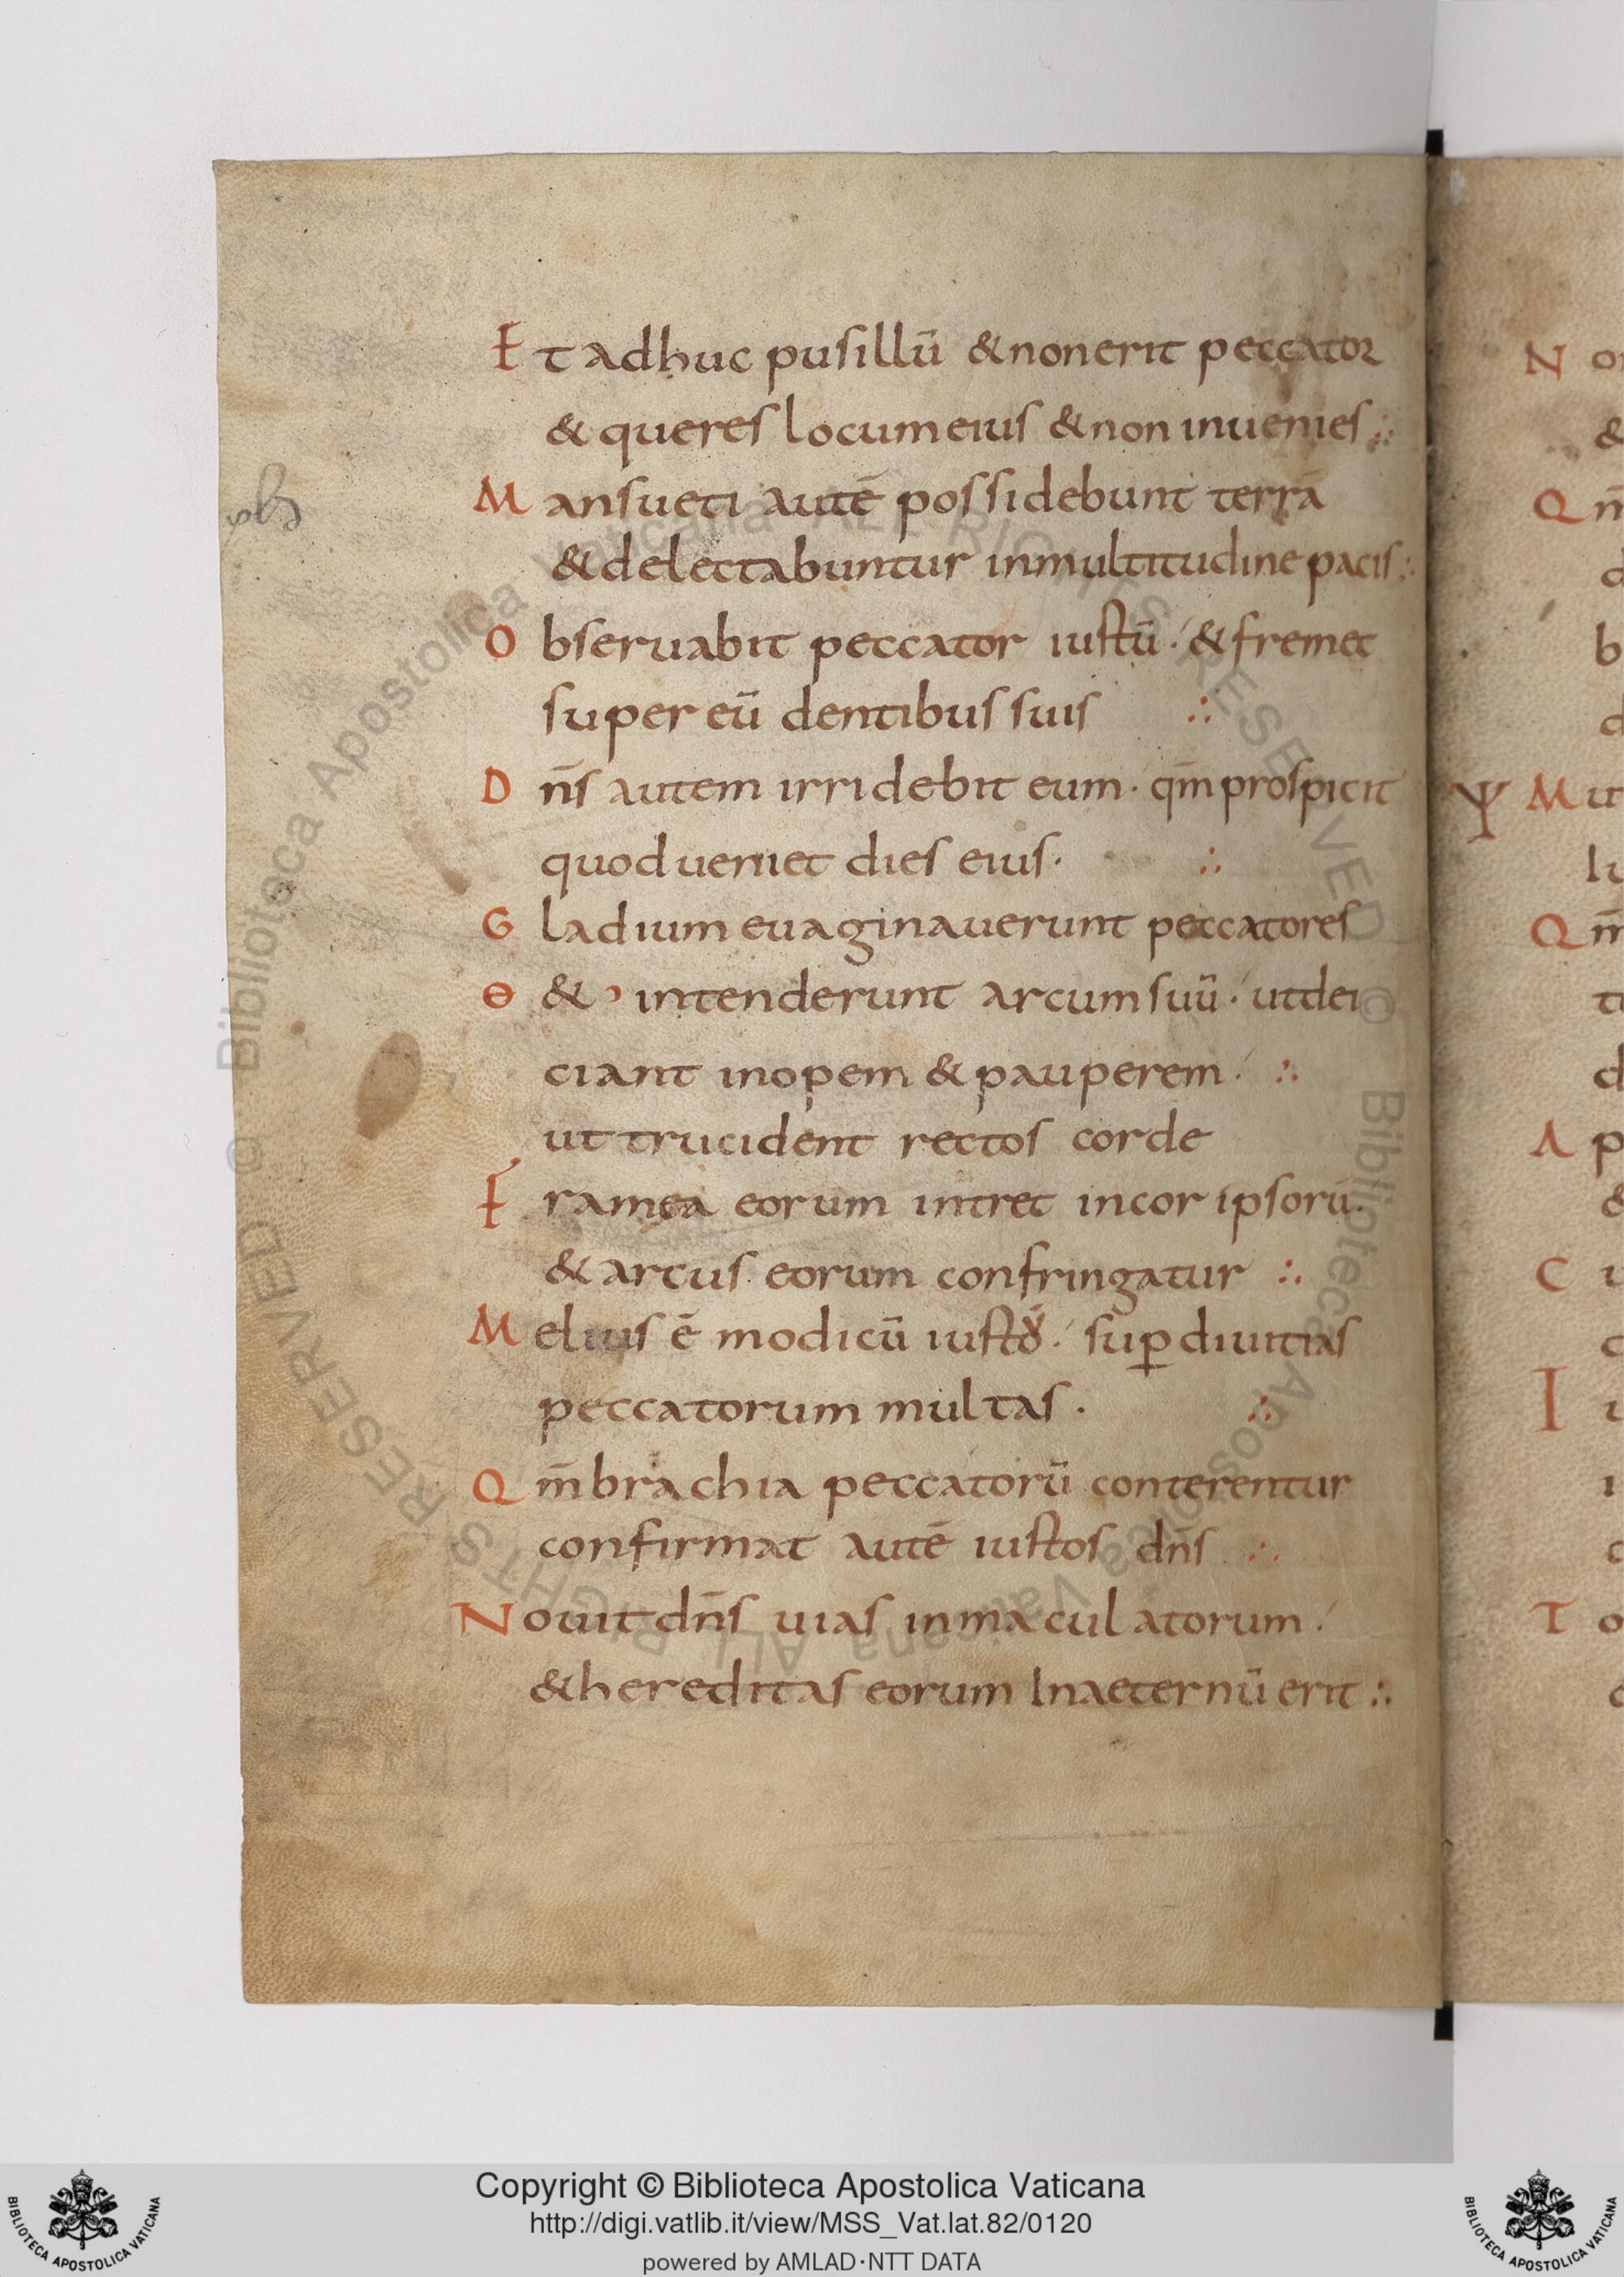 Et adhuc pusillū & non erit peccator
& queres locum eius & non inuenies ∴
Mansueti autē possidebunt terrā
& delectabuntur in multitudine pacis ∴
Obseruabit peccator iustū · & fremet
super eū dentibus suis ∴
Dn̄s autem irridebit eum · qm̄ prospicit
quod ueniet dies eius · ∴
Gladium euaginauerunt peccatores
& intenderunt arcum suū · ut dei
ciant inopem & pauperem · ∴
ut trucident rectos corde
Framea eorum intret in cor ipsorū ·
& arcus eorum confringatur ∴
Melius ē modicū iusto · sup diuitias
peccatorum multas · ∴
Qm̄ brachia peccatorū conterentur
confirmat autē iustos dn̄s ∴
Nouit dn̄s uias inmaculatorum ·
& hereditas eorum In aeternū erit ∴
N
&
Q m̄
b
d
Ψ Mu
Q m̄
d
A p
&
C
I
T o
© Biblioteca Apostolica Vaticana ALL RIGHTS RESERVED
© Biblioteca Apostolica Vaticana ALL RIGHTS RESERVED
Copyright © Biblioteca Apostolica Vaticana
http://digi.vatlib.it/view/MSS_Vat.lat.82/0120
powered by AMLAD·NTT DATA
BIBLIOTECA APOSTOLICA VATICANA
BIBLIOTECA APOSTOLICA VATICANA